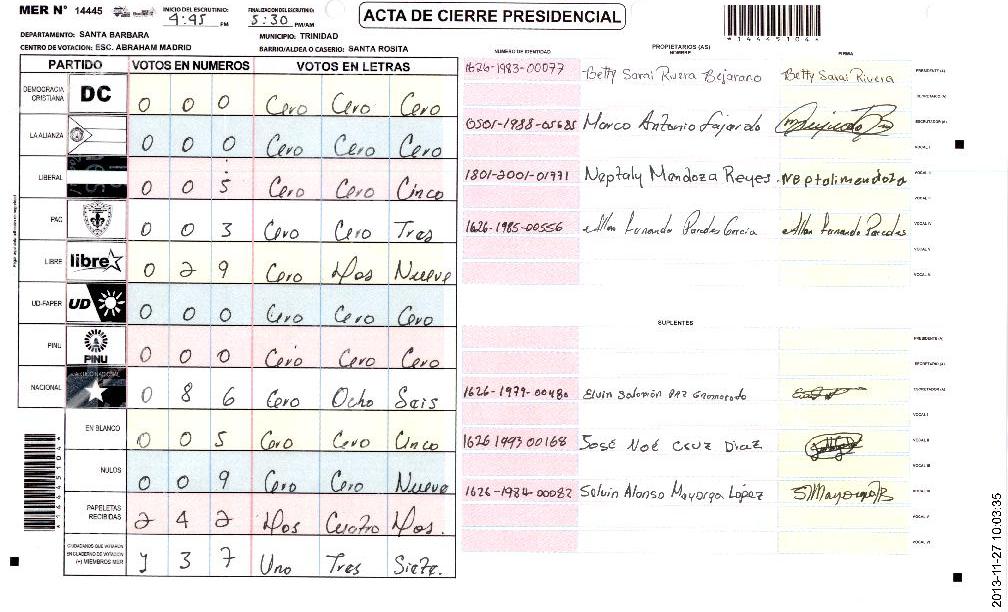 MER N° 14445
INICIO DEL ESCRUTINIO: 4:45 PM
FINALIZACION DEL ESCRUTINIO: 5:30 PM/AM
ACTA DE CIERRE PRESIDENCIAL
*14445104*
DEPARTAMENTO: SANTA BARBARA
MUNICIPIO: TRINIDAD
CENTRO DE VOTACION: ESC. ABRAHAM MADRID
BARRIO/ALDEA O CASERIO: SANTA ROSITA
PARTIDO VOTOS EN NUMEROS VOTOS EN LETRAS
DEMOCRACIA CRISTIANA DC 0 0 0 Cero Cero Cero
LA ALIANZA 0 0 0 Cero Cero Cero
LIBERAL 0 0 5 Cero Cero Cinco
PAC 0 0 3 Cero Cero Tres
LIBRE libre 0 2 9 Cero Dos Nueve
UD-FAPER UD 0 0 0 Cero Cero Cero
PINU PINU 0 0 0 Cero Cero Cero
NACIONAL 0 8 6 Cero Ocho Seis
EN BLANCO 0 0 5 Cero Cero Cinco
NULOS 0 0 9 Cero Cero Nueve
PAPELETAS RECIBIDAS 2 4 2 Dos Cuatro Dos.
CIUDADANOS QUE VOTARON EN CUADERNO DE VOTACION (+) MIEMBROS MER 1 3 7 Uno Tres Siete.
NUMERO DE IDENTIDAD
PROPIETARIOS (AS)
NOMBRE
FIRMA
1626-1983-00077 Betty Sarai Rivera Bejarano Betty Sarai Rivera PRESIDENTE (A)
SECRETARIO (A)
0501-1988-05685 Marco Antonio Fajardo ESCRUTADOR (A)
VOCAL I
1801-2001-01771 Neptaly Mendoza Reyes. Neptalimendoza VOCAL II
VOCAL III
1626-1985-00556 Allan Fernando Paredes Garcia Allan Fernando Paredes VOCAL IV
VOCAL V
VOCAL VI
SUPLENTES
PRESIDENTE (A)
SECRETARIO (A)
1626-1979-00480 Elvin Salomón Paz Enamorado ESCRUTADOR (A)
VOCAL I
1626 1993 00168 José Noé Cruz Diaz VOCAL II
VOCAL III
1626-1984-00082 Selvin Alonso Mayorga López VOCAL IV
VOCAL V
VOCAL VI
*14445104*
2013-11-27 10:03:35